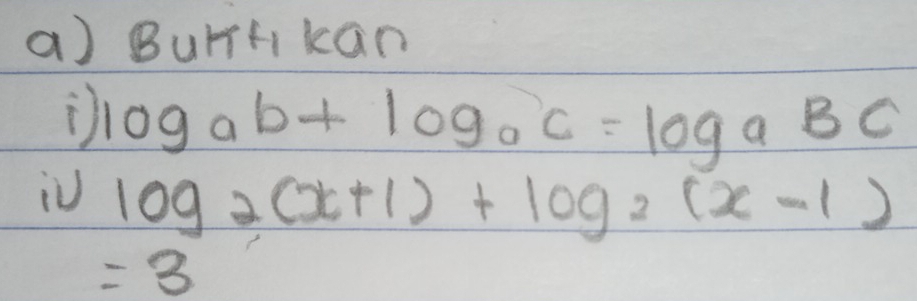 a) Buktikan
i) log a b + log a c = log a BC
ii) log 2 (x+1) + log 2 (x-1)
= 3